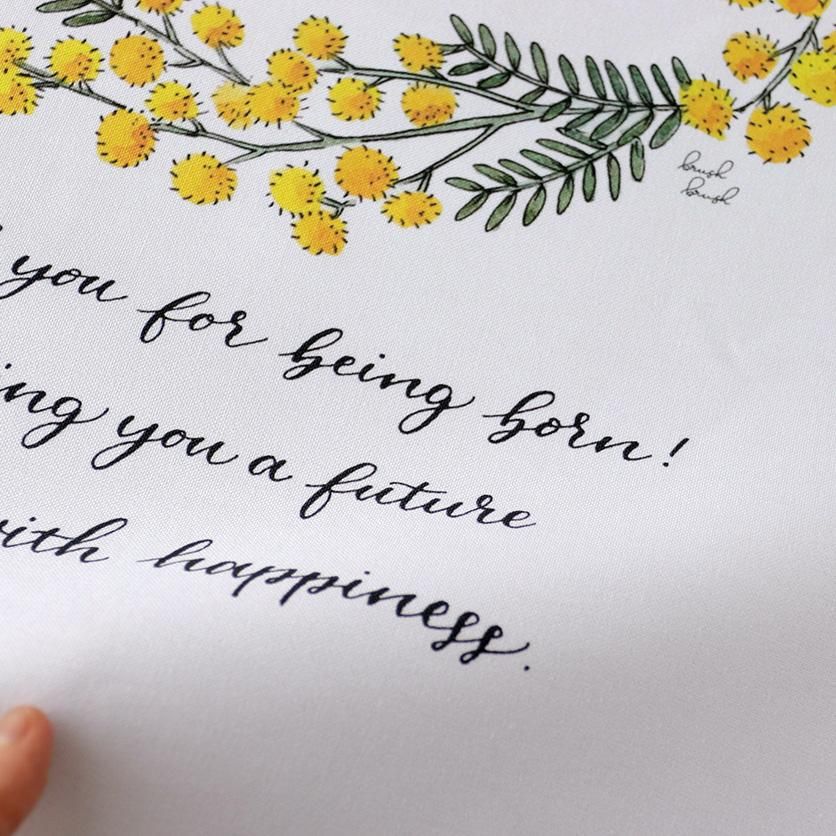 brush
brush
you for being born!
ing you a future
ith happiness.